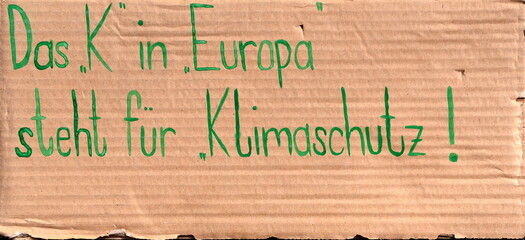 Das „K“ in „Europa“
steht für „Klimaschutz“!